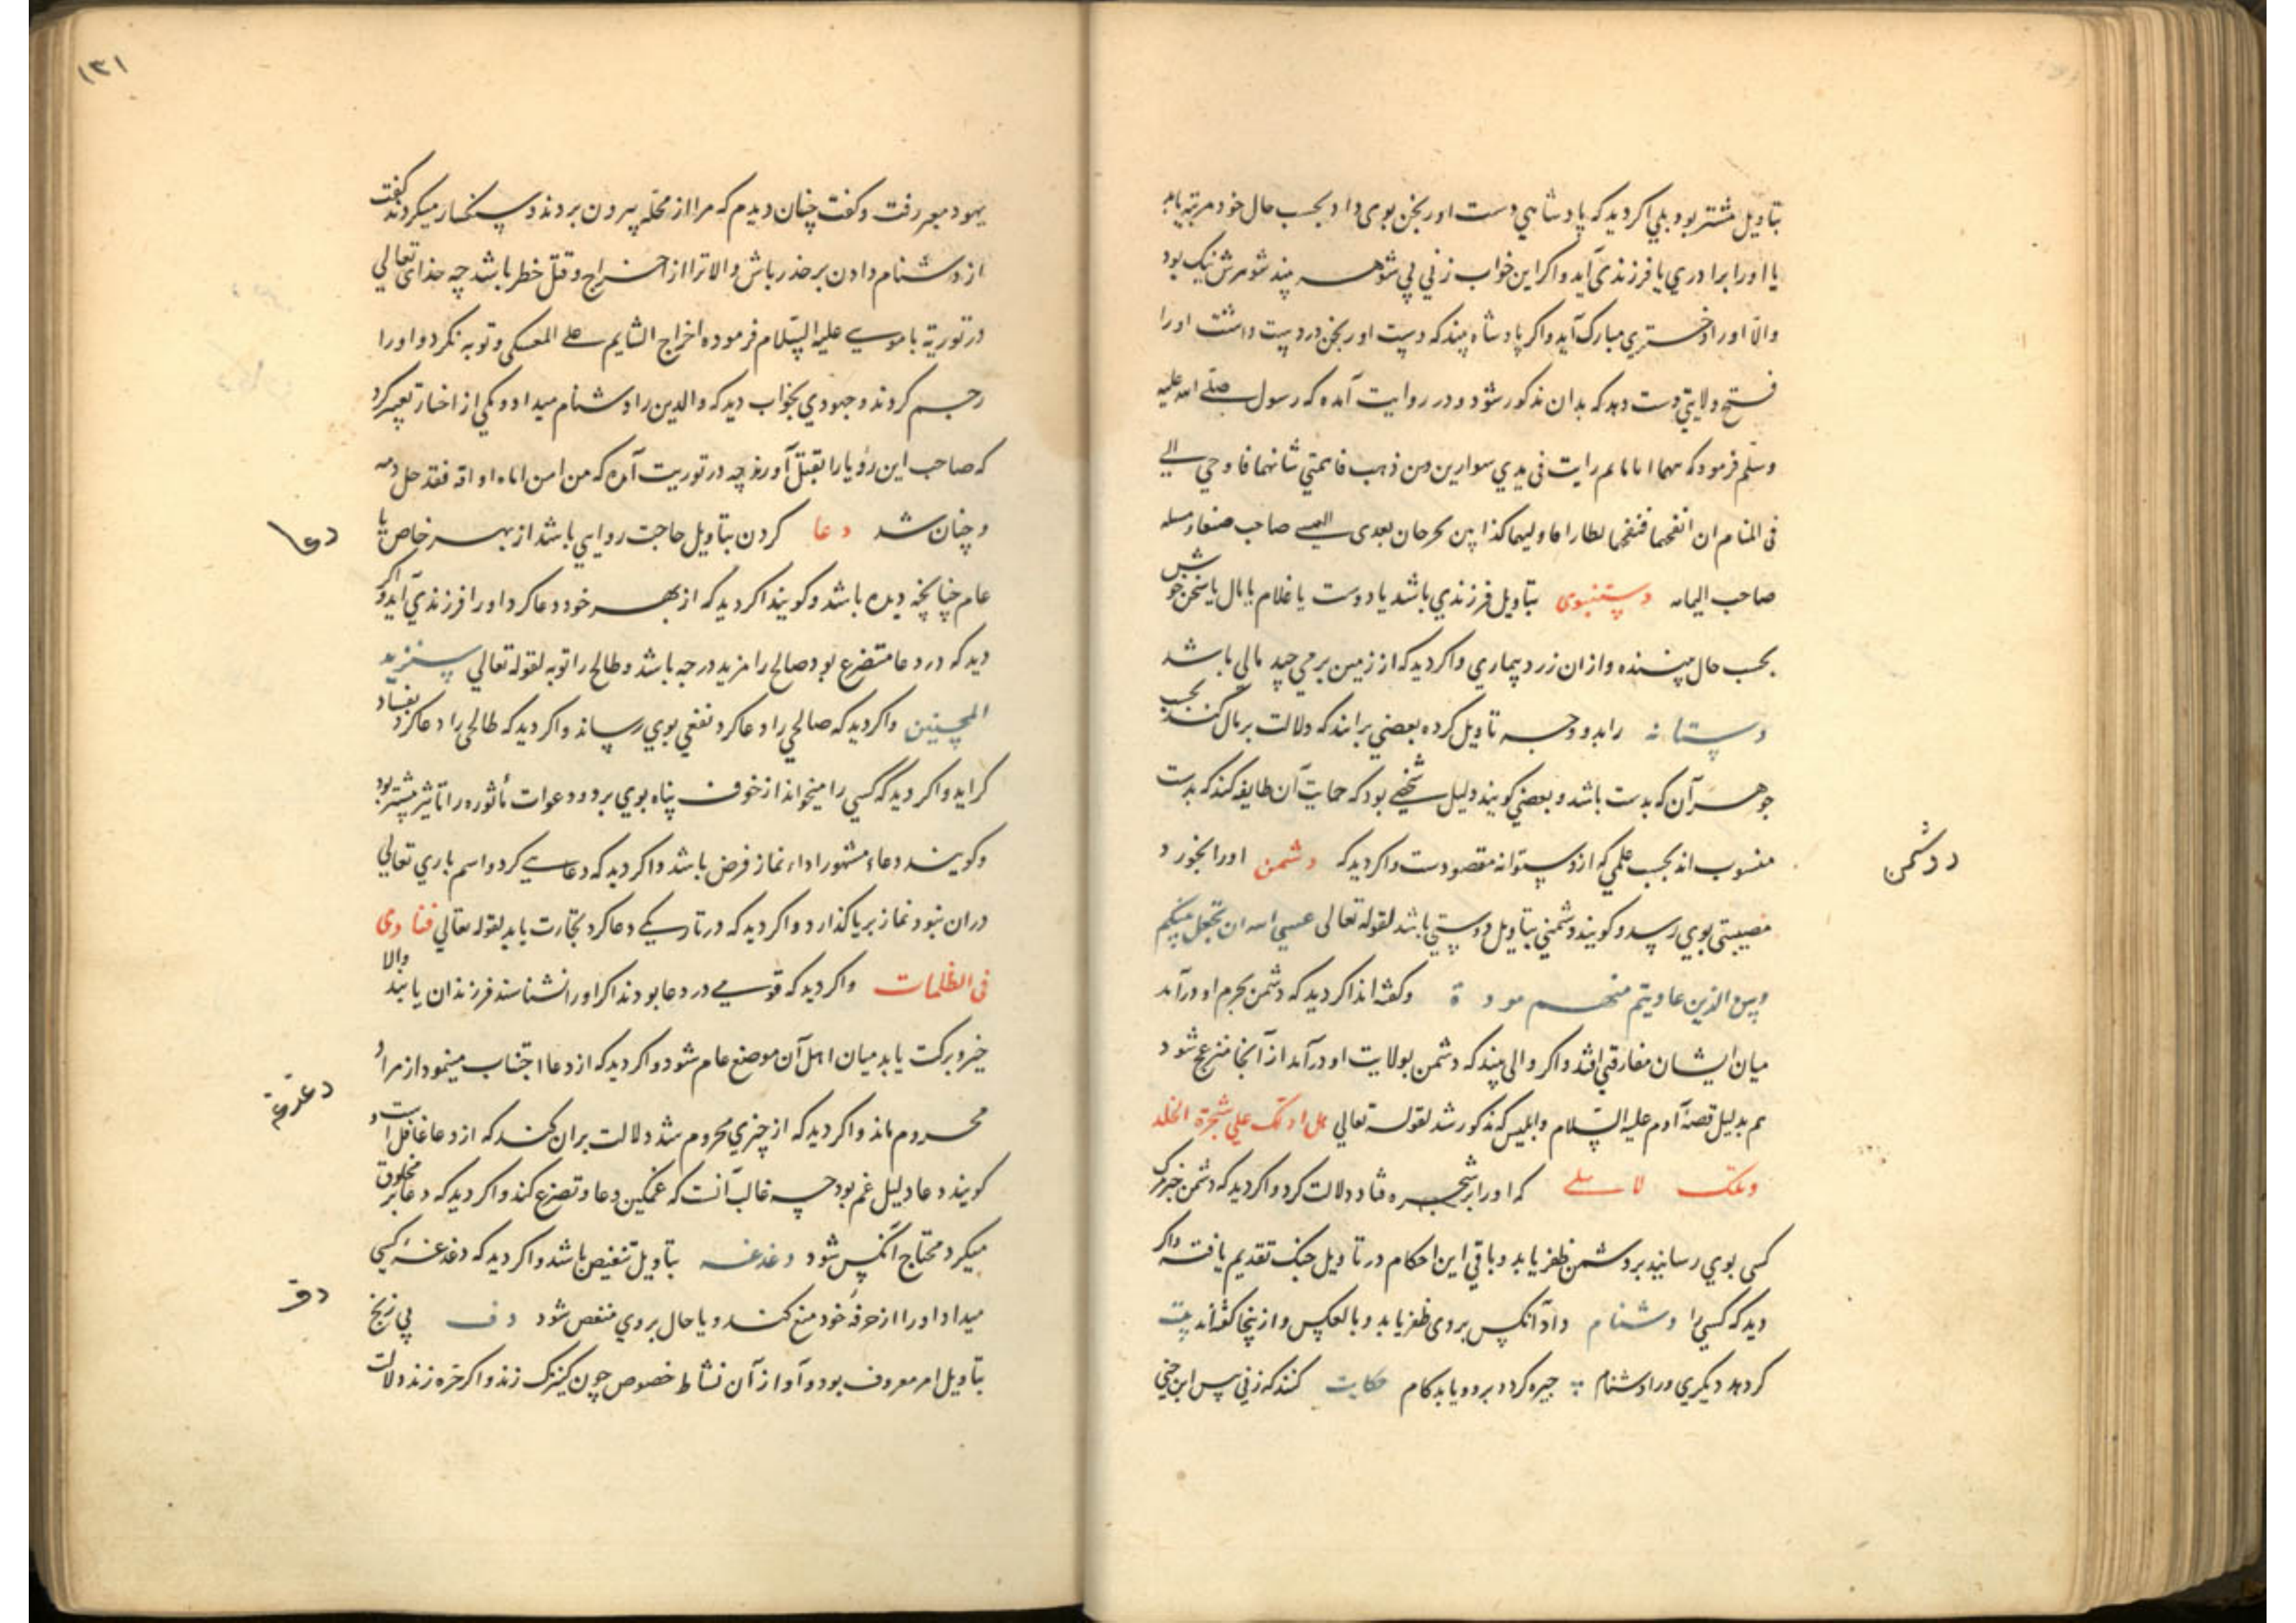 بتاویل مشتر بود بلی اکر دید که پادشاهی دست اورنجن بوی داد بحسب حال خود مرتبه یابد
یا اورا برادری یا فرزندی آید و اکر این خواب زنی بی شوهر بیند شوهرش نیک بود
والا اورا دختری مبارک آید و اکر پادشاه بیند که دست اورنجن در دست داشت اورا
فتح ولایتی دست دهد که بدان مذکور شود و در روایت آمده که رسول صلی الله علیه
وسلم فرمود که رایت فی یدی سوارین من ذهب فاهمنی شانهما فاوحی الی
فی المنام ان انفخهما فنفخهما فطارا فاولتهما کذابین یخرجان بعدی صاحب صنعا و مسیلمه
صاحب الیمامه دستنبوی بتاویل فرزندی باشد یا دوست یا غلام یا مال یا سخن خوش
بحسب حال بیننده و از ان زرد بیماری و اکر دید که از زمین برمی چید مالی باشد
دستانه را بدو وجه تاویل کرده بعضی برانند که دلالت بر مال کند بحسب
جوهر آن که بدست باشد و بعضی کویند دلیل شخصی بود که حمایت آن طایفه کند که بدست
منسوب اند بحسب علمی که از دستوانه مقصودست و اکر دید که دشمن اورا بخورد
مصیبتی بوی رسد و کویند دشمنی بتاویل دوستی باشد لقوله تعالی عسی الله ان یجعل بینکم
وبین الذین عادیتم منهم مودة و کفته اند اکر دید که دشمن بحرم او درآمد
میان ایشان مفارقتی افتد و اکر والی بیند که دشمن بولایت او درآمد از آنجا منزعج شود
هم بدلیل قصۀ آدم علیه السلام و ابلیس که مذکور شد لقوله تعالی هل ادلک علی شجرة الخلد
وملک لا یبلی که اورا بر شجره فنا دلالت کرد و اکر دید که دشمن خبر مرک
کسی بوی رسانید بر دشمن ظفر یابد و باقی این احکام در تاویل جنک تقدیم یافت و اکر
دید که کسی را دشنام داد آنکس بر وی ظفر یابد و بالعکس و از ینجا کفته اند بیت
کر دهد دیکری ورا دشنام چیره کردد برو و یابد کام حکایت کنند که زنی پس ابن حیی
ددشمن
۱۳۱
یهود معبر رفت و کفت چنان دیدم که مرا از محله بیرون بردند و سنکسار میکردند کفت
از دشنام دادن بر حذر باش والا ترا از اخراج و قتل خطر باشد چه خدای تعالی
در توریة با موسی علیه السلام فرموده اخراج الشایم علی المعسکر و توبه نکرد و اورا
رجم کردند و جهودی بخواب دید که والدین را دشنام میداد و یکی از احبار تعبیر کرد
که صاحب این رؤیا را بقتل آورند چه در توریت آمده که من اهن اباه او امه فقد حل دمه
و چنان شد دعا کردن بتاویل حاجت روایی باشد از بهر خاص یا
عام چنانچه دیده باشد و کویند اکر دید که از بهر خود دعا کرد اورا فرزندی آید و اکر
دید که در دعا متضرع بود صالح را مزید درجه باشد و طالح را توبه لقوله تعالی سنزید
المحسنین و اکر دید که صالحی را دعا کرد نفعی بوی رساند و اکر دید که طالحی را دعا کرد بفساد
کراید و اکر دید که کسی را میخواند از خوف پناه بوی برد و دعوات مأثوره را تاثیر بیشتر بود
و کویند دعاء مشهور اداء نماز فرض باشد و اکر دید که دعایی کرد و اسم باری تعالی
دران نبود نماز بریا کذارد و اکر دید که در تاریکی دعا کرد نجات یابد لقوله تعالی فنادی
فی الظلمات و اکر دید که قومی در دعا بودند اکر اورا نشناسند فرزندان یابند والا
خیر و برکت یابد میان اهل آن موضع عام شود و اکر دید که از دعا اجتناب مینمود از مراد
محروم ماند و اکر دید که از چیزی محروم شد دلالت بران کند که از دعا غافل است و
کویند دعا دلیل غم بود چه غالب آنست که غمکین دعا و تضرع کند و اکر دید که دعا بر مخلوق
میکرد محتاج آنکس شود دغدغه بتاویل تنغیص باشد و اکر دید که دغدغۀ کسی
میداد اورا از حرفۀ خود منع کند و یا حال بروی منغص شود دف بی زنج
بتاویل امر معروف بود و آواز آن نشاط خصوص چون کنیزک زند و اکر حره زند دلالت
دعا
دغدغه
دف